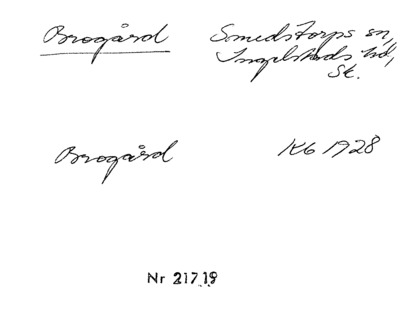 Brogård
Smedstorps sn,
Ingelstads hd,
Sk.
Brogård
Kb 1928
Nr 21719